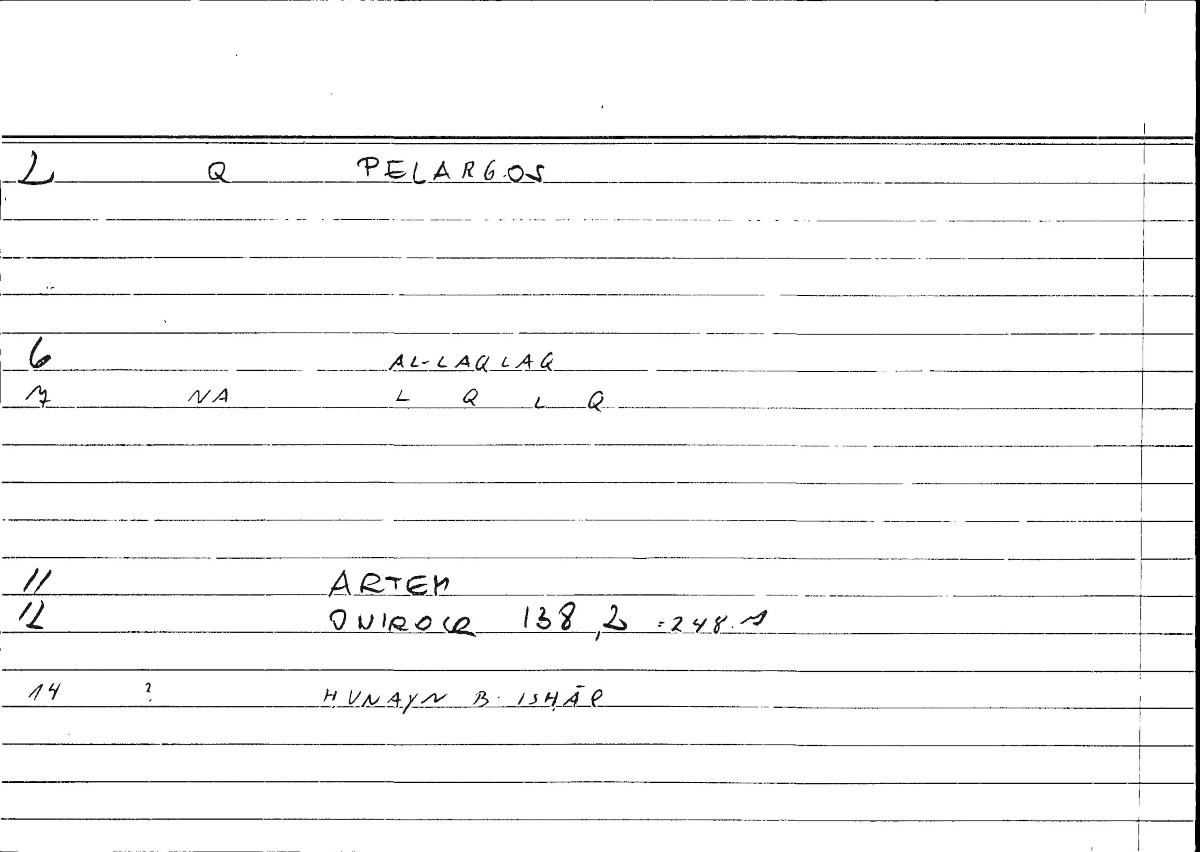 2 Q PELARGOS
6 AL-LAQLAQ
7 NA L Q L Q
11 ARTEM
12 ONIROCR 138,2 =248.1
14 ? HUNAYN B. ISḤĀQ